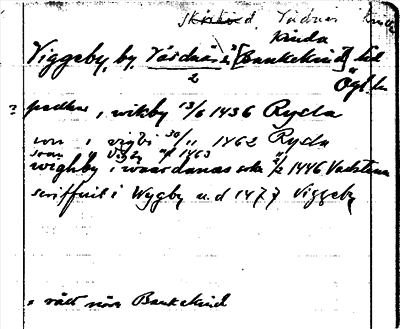 Skärkind, Vårdnäs kinda
Kinda
Viggeby, by, Vårdnäs s:n [Bankekind] hd
2
Ögl. l.
? pedhar i wikby 13/6 1436 Ryda
son i vigbi 30/11 1462 Ryda
Vigby 1463
wighby i waardanas sokn 2/2 1446 Vadstena
scriffuit i Wygby u.d 1477 Viggeby
rätt nära Bankekind